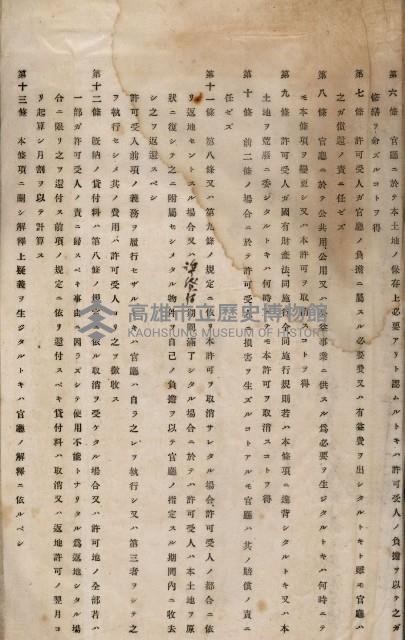 第六條　官廳ニ於テ本土地ノ保存上必要アリト認ムルトキハ許可受人ノ負擔ヲ以テ之ガ
修繕ヲ命ズルコトヲ得
第七條　許可受人ガ官廳ノ負擔ニ屬スル必要費又ハ有益費ヲ出シタルトキト雖モ官廳ハ
之ガ償還ノ責ニ任ゼズ
第八條　官廳ニ於テ公共用公用又ハ公益事業ニ供スル爲必要ヲ生ジタルトキハ何時ニテ
モ本條項ヲ變更シ又ハ本許可ヲ取消スコトヲ得
第九條　許可受人ガ國有財產法、同施行令同施行規則若ハ本條項ニ違背シタルトキ又ハ本
土地ヲ荒廢ニ委シタルトキハ何時ニテモ本許可ヲ取消スコトヲ得
第十條　前二條ノ場合ニ於テ許可受人ニ損害ヲ生ズルコトアルモ官廳ハ其ノ賠償ノ責ニ
任ゼズ
第十一條　第八條又ハ第九條ノ規定ニ依リ本許可ヲ取消サレタル場合、許可受人ノ都合ニ依
リ返地セントスル場合又ハ期間滿了シタル場合ニ於テハ許可受人ハ本土地ヲ原
狀ニ復シ之ニ附屬セシメタル物件ヲ自己ノ負擔ヲ以テ官廳ノ指定スル期間內ニ收去
シ之ヲ返還スベシ
許可受人前項ノ義務ヲ履行セザルトキハ官廳ハ自ラ之レヲ執行シ又ハ第三者ヲシテ之
ヲ執行セシメ其ノ費用ハ許可受人ヨリ之ヲ徵收ス
第十二條　旣納ノ貸付料ハ第八條ノ規定ニ依ル取消ヲ受ケタル場合又ハ許可地ノ全部若ハ
一部ガ許可受人ノ責ニ歸スベキ事由ニ因ラズシテ使用不能トナリタル爲返地シタル場
合ニ限リ之ヲ還付ス前項ノ規定ニ依リ還付スベキ貸付料ハ取消又ハ返地許可ノ翌月ヨ
リ起算シ月割ヲ以テ計算ス
第十三條　本條項ニ關シ解釋上疑義ヲ生ジタルトキハ官廳ノ解釋ニ依ルベシ
高雄市立歷史博物館
KAOHSIUNG MUSEUM OF HISTORY